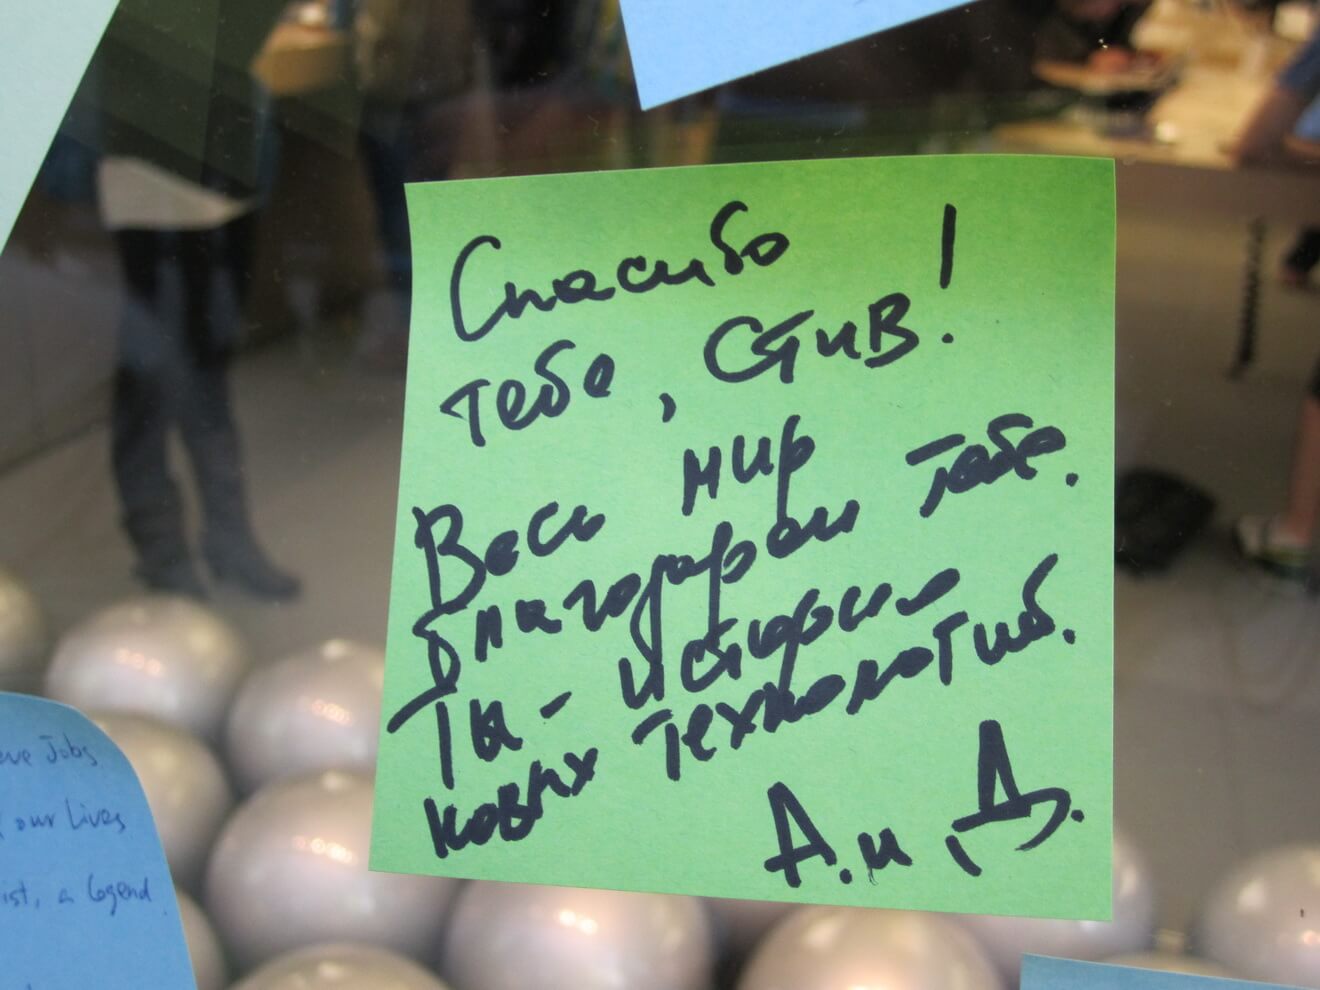 Спасибо
тебе, Стив!
Весь мир
благодарен тебе.
Ты - история
новых технологий.
А. и Д.
eve Jobs
our Lives
ist, a legend